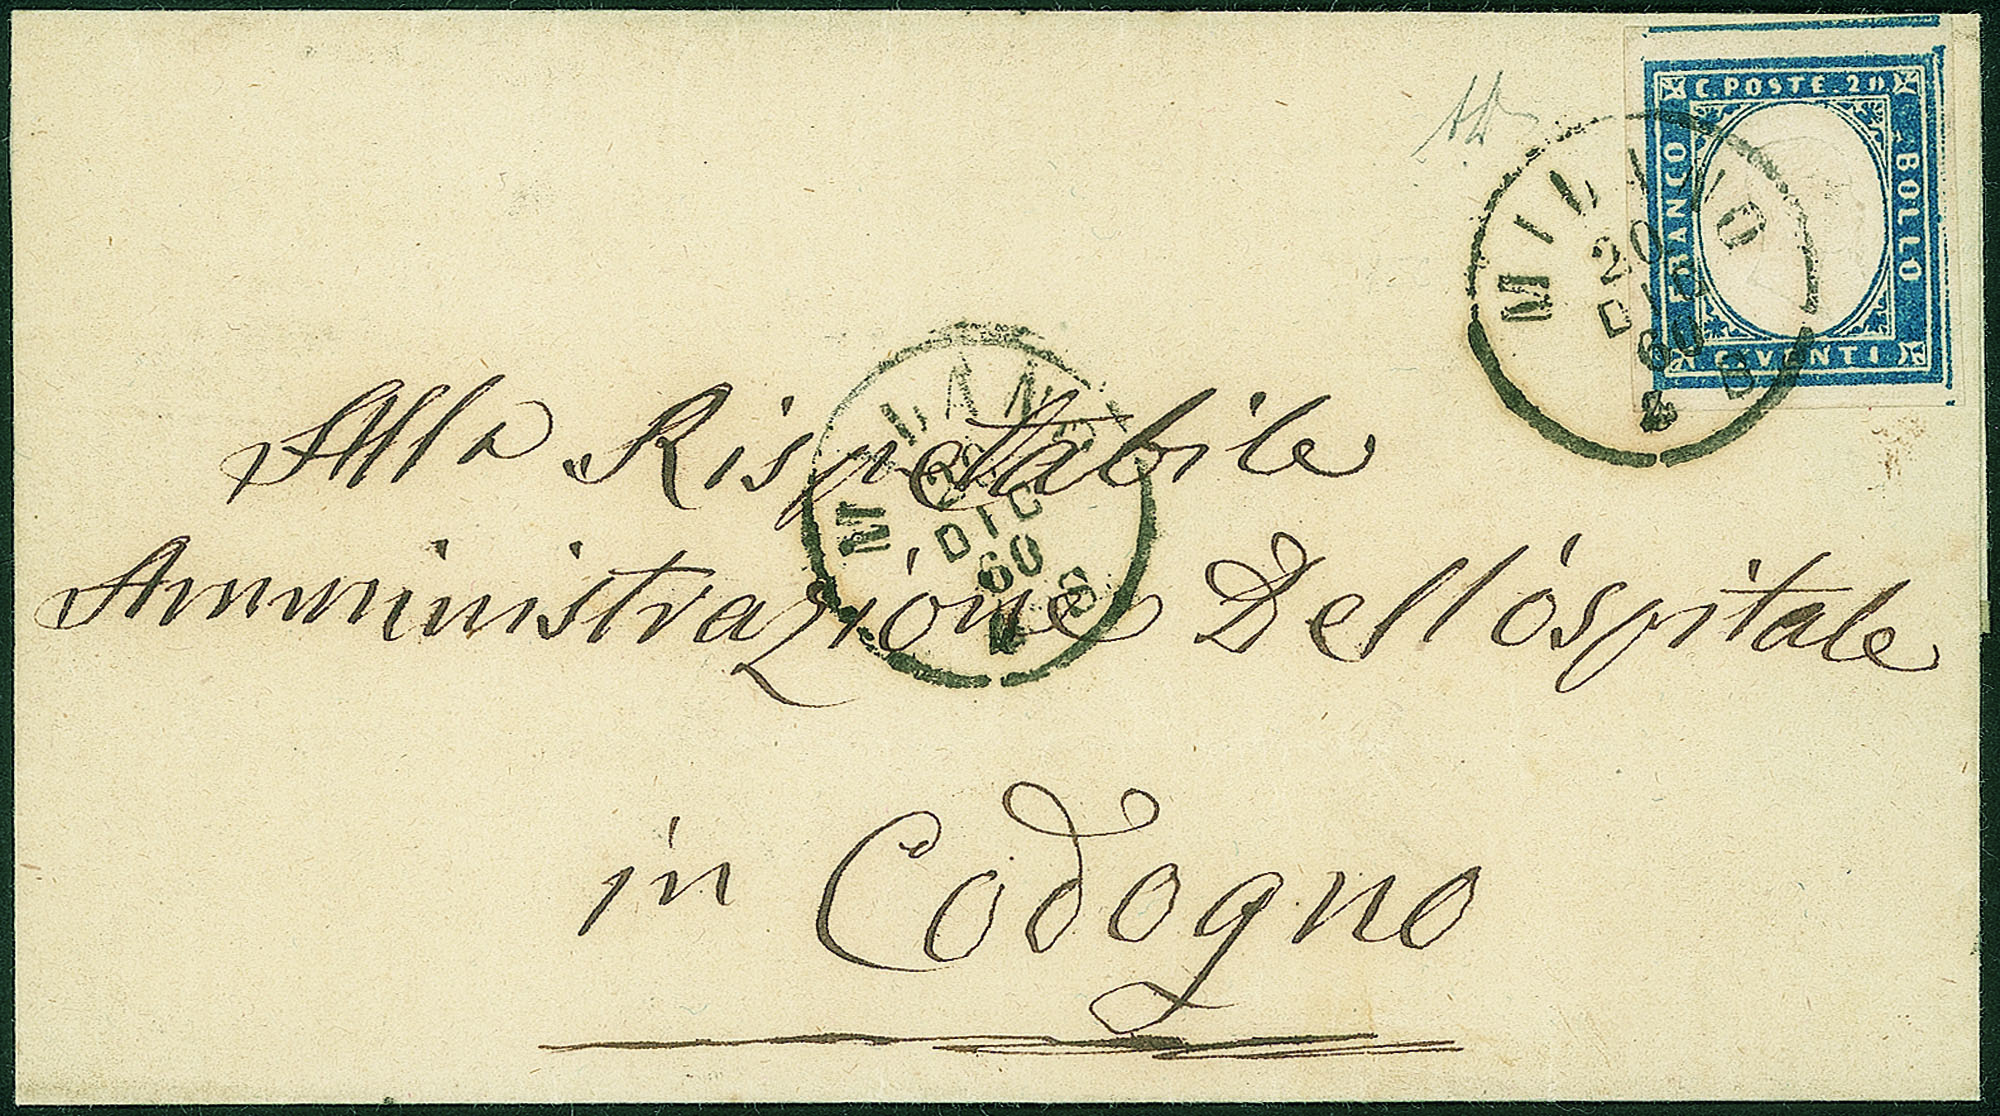 C. POSTE 20
FRANCO
BOLLO
C. VENTI
MILANO
20
DIC
60
B
Alla Rispettabile
MILANO
20
DIC
60
Amministrazione Dell'óspitale
in Codogno